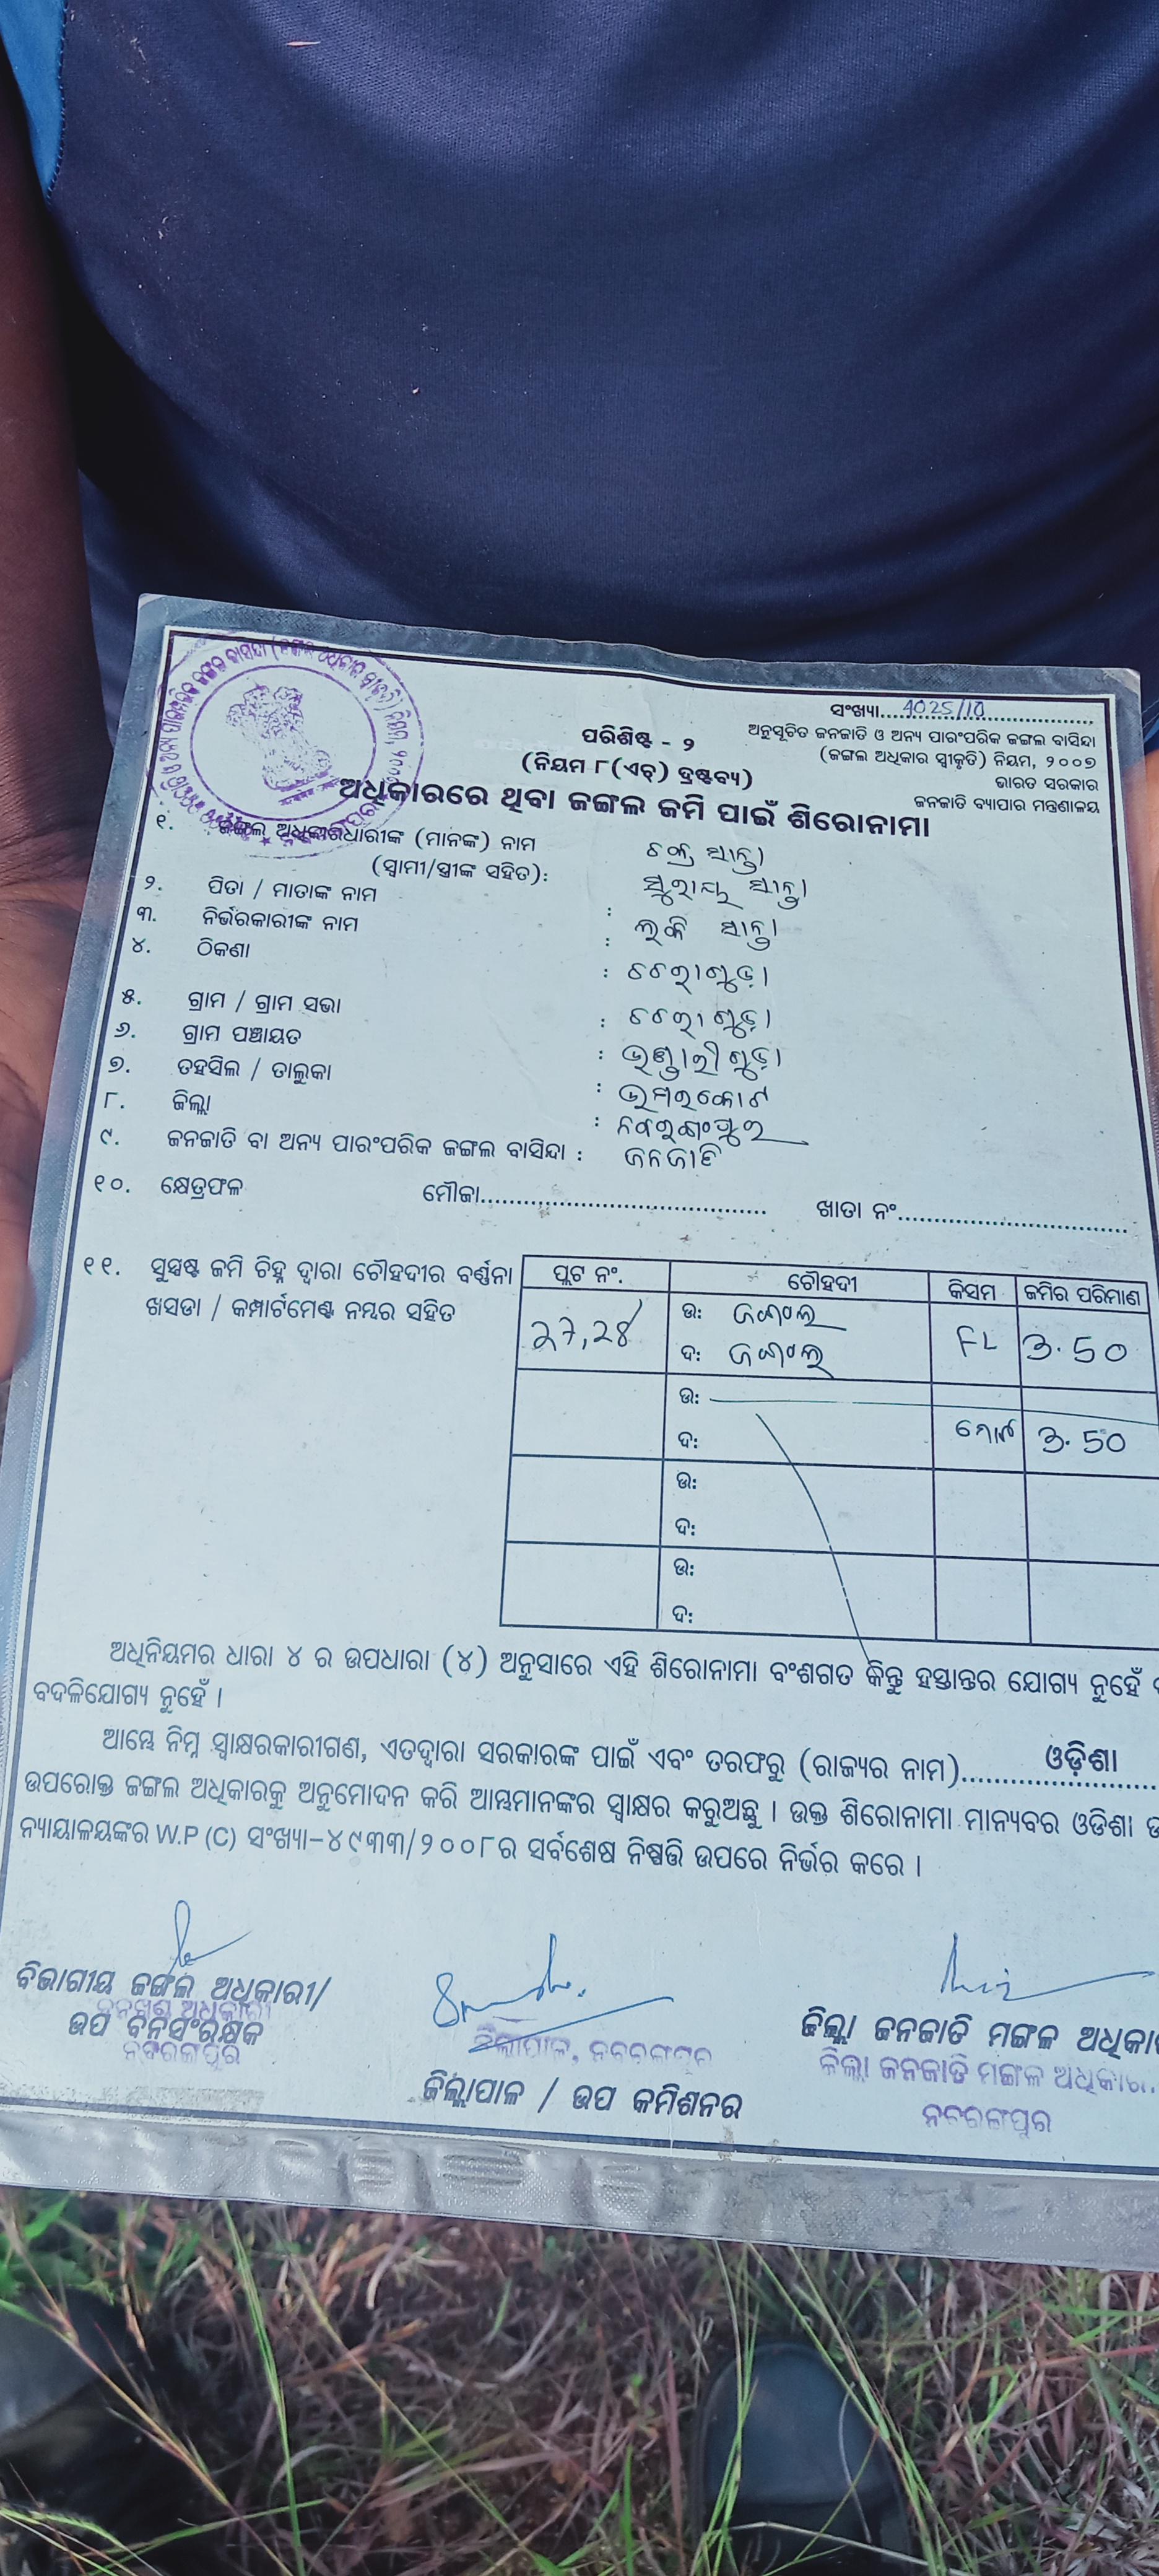 ସଂଖ୍ୟା....4025/10....
ଅନୁସୂଚିତ ଜନଜାତି ଓ ଅନ୍ୟ ପାରଂପରିକ ଜଙ୍ଗଲ ବାସିନ୍ଦା
(ଜଙ୍ଗଲ ଅଧିକାର ସ୍ୱୀକୃତି) ନିୟମ, ୨୦୦୭
ଭାରତ ସରକାର
ଜନଜାତି ବ୍ୟାପାର ମନ୍ତ୍ରଣାଳୟ
ପରିଶିଷ୍ଟ - ୨
(ନିୟମ ୮(ଏଚ୍) ଦ୍ରଷ୍ଟବ୍ୟ)
ଅଧିକାରରେ ଥିବା ଜଙ୍ଗଲ ଜମି ପାଇଁ ଶିରୋନାମା
୧. ଜଙ୍ଗଲ ଅଧିକାରଧାରୀଙ୍କ (ମାନଙ୍କ) ନାମ
(ସ୍ୱାମୀ/ସ୍ତ୍ରୀଙ୍କ ସହିତ):
୨. ପିତା / ମାତାଙ୍କ ନାମ :
୩. ନିର୍ଭରକାରୀଙ୍କ ନାମ :
୪. ଠିକଣା :
୫. ଗ୍ରାମ / ଗ୍ରାମ ସଭା :
୬. ଗ୍ରାମ ପଞ୍ଚାୟତ : ଭଣ୍ଡାରୀଗୁଡ଼ା
୭. ତହସିଲ / ତାଲୁକା : ଉମରକୋଟ
୮. ଜିଲ୍ଲା : ନବରଙ୍ଗପୁର
୯. ଜନଜାତି ବା ଅନ୍ୟ ପାରଂପରିକ ଜଙ୍ଗଲ ବାସିନ୍ଦା : ଜନଜାତି
୧୦. କ୍ଷେତ୍ରଫଳ ମୌଜା........ ଖାତା ନଂ........
୧୧. ସୁସ୍ପଷ୍ଟ ଜମି ଚିହ୍ନ ଦ୍ୱାରା ଚୌହଦୀର ବର୍ଣ୍ଣନା
ଖସଡା / କମ୍ପାର୍ଟମେଣ୍ଟ ନମ୍ବର ସହିତ
ପ୍ଲଟ ନଂ. ଚୌହଦୀ କିସମ ଜମିର ପରିମାଣ
27,28 ଉ: ଜଙ୍ଗଲ FL 3.50
ଦ: ଜଙ୍ଗଲ
ଉ:
ଦ: ମୋଟ 3.50
ଉ:
ଦ:
ଉ:
ଦ:
ଅଧିନିୟମର ଧାରା ୪ ର ଉପଧାରା (୪) ଅନୁସାରେ ଏହି ଶିରୋନାମା ବଂଶଗତ କିନ୍ତୁ ହସ୍ତାନ୍ତର ଯୋଗ୍ୟ ନୁହେଁ
ବଦଳିଯୋଗ୍ୟ ନୁହେଁ ।
ଆମ୍ଭେ ନିମ୍ନ ସ୍ୱାକ୍ଷରକାରୀଗଣ, ଏତଦ୍ୱାରା ସରକାରଙ୍କ ପାଇଁ ଏବଂ ତରଫରୁ (ରାଜ୍ୟର ନାମ)....ଓଡ଼ିଶା....
ଉପରୋକ୍ତ ଜଙ୍ଗଲ ଅଧିକାରକୁ ଅନୁମୋଦନ କରି ଆମ୍ଭମାନଙ୍କର ସ୍ୱାକ୍ଷର କରୁଅଛୁ । ଉକ୍ତ ଶିରୋନାମା ମାନ୍ୟବର ଓଡିଶା
ନ୍ୟାୟାଳୟଙ୍କର W.P (C) ସଂଖ୍ୟା-୪୯୩୩/୨୦୦୮ର ସର୍ବଶେଷ ନିଷ୍ପତ୍ତି ଉପରେ ନିର୍ଭର କରେ ।
ବିଭାଗୀୟ ଜଙ୍ଗଲ ଅଧିକାରୀ/
ବନଖଣ୍ଡ ଅଧିକାରୀ
ଉପ ବନସଂରକ୍ଷକ
ନବରଙ୍ଗପୁର
ଜିଲ୍ଲାପାଳ, ନବରଙ୍ଗପୁର
ଜିଲ୍ଲାପାଳ / ଉପ କମିଶନର
ଜିଲ୍ଲା ଜନଜାତି ମଙ୍ଗଳ
ଜିଲ୍ଲା ଜନଜାତି ମଙ୍ଗଳ
ନବରଙ୍ଗପୁର